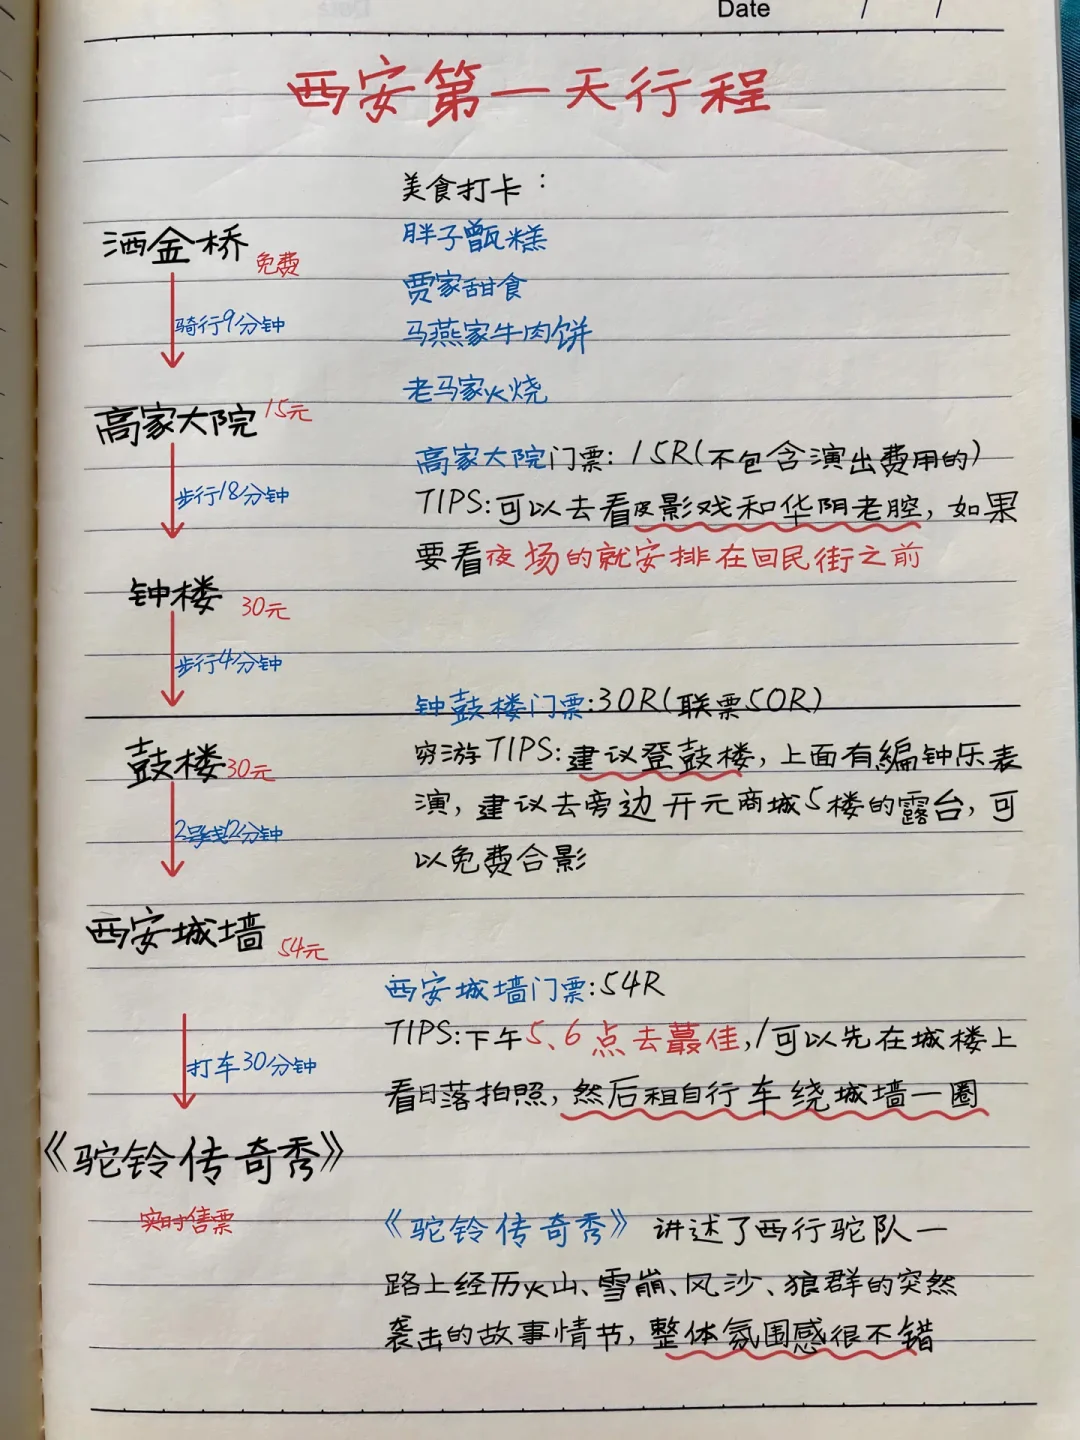 Date / /
西安第一天行程
美食打卡：
洒金桥 免费
胖子甑糕
贾家甜食
骑行9分钟
马燕家牛肉饼
老马家火烧
高家大院 15元
高家大院门票: 15R(不包含演出费用的)
步行18分钟
TIPS:可以去看皮影戏和华阴老腔，如果
要看夜场的就安排在回民街之前
钟楼 30元
步行4分钟
钟鼓楼门票:30R(联票50R)
鼓楼30元
穷游TIPS:建议登鼓楼，上面有编钟乐表
演，建议去旁边开元商城5楼的露台，可
2号线12分钟
以免费合影
西安城墙 54元
西安城墙门票:54R
TIPS:下午5、6点去最佳，/可以先在城楼上
打车30分钟
看日落拍照，然后租自行车绕城墙一圈
《驼铃传奇秀》
实时售票
《驼铃传奇秀》讲述了西行驼队一
路上经历火山、雪崩、风沙、狼群的突然
袭击的故事情节，整体氛围感很不错